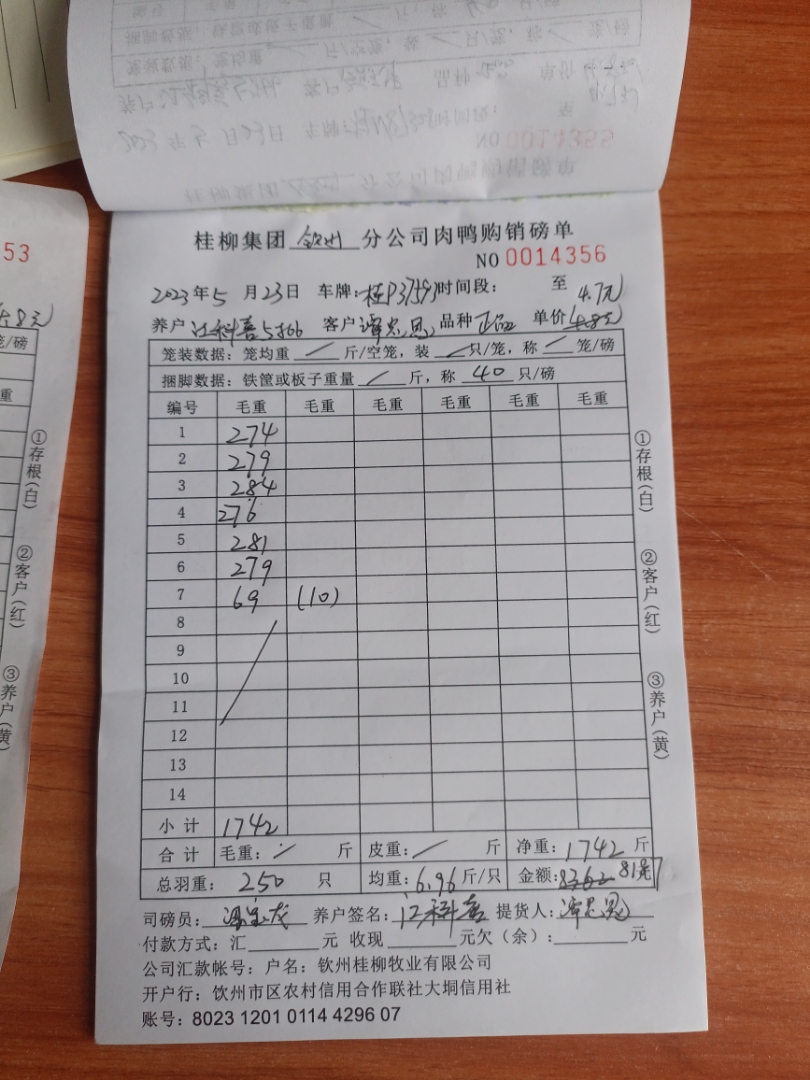 53
桂柳集团 钦州 分公司肉鸭购销磅单
NO 0014356
2023年5月23日 车牌:桂P37593 时间段: 至 4.7元
养户 江科喜 客户 谭忠恩 品种 正品 单价 4.8元
笼装数据:笼均重 / 斤/空笼,装 / 只/笼,称 / 笼/磅
捆脚数据:铁筐或板子重量 / 斤,称 40 只/磅
编号 毛重 毛重 毛重 毛重 毛重 毛重
1 274
2 279
3 284
4 276
5 281
6 279
7 69 (10)
8
9
10
11
12
13
14
小计 1742
合计 毛重: / 斤 皮重: / 斤 净重: 1742 斤
总羽重: 250 只 均重: 6.96 斤/只 金额: 8362
司磅员: 养户签名: 江科喜 提货人: 谭忠恩
付款方式:汇 元 收现 元欠(余): 元
公司汇款帐号:户名:钦州桂柳牧业有限公司
开户行:钦州市区农村信用合作联社大垌信用社
账号:8023 1201 0114 4296 07
①存根(白)
②客户(红)
③养户(黄)
4.8元
笼/磅
重
①存根(白)
②客户(红)
③养户(黄)